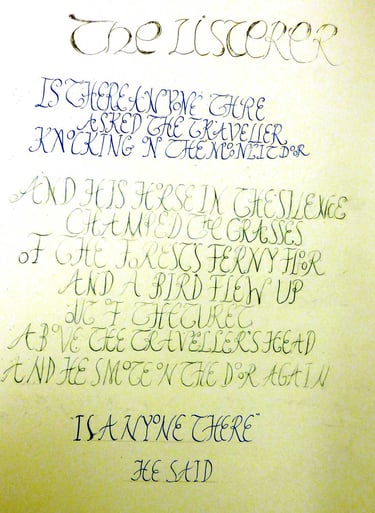 THE LISTERER
IS THERE ANYONE THRE
ASKED THE TRAVELLER
KNOCKING ON THE MOONLIT DOOR
AND HIS HORSE IN THE SILENCE
CHAMPED THE GRASSES
OF THE FORESTS FERNY FLOOR
AND A BIRD FLEW UP
OUT OF THE TURET
ABOVE THE TRAVELLER'S HEAD
AND HE SMOTE ON THE DOOR AGAIN
"IS ANYONE THERE"
HE SAID